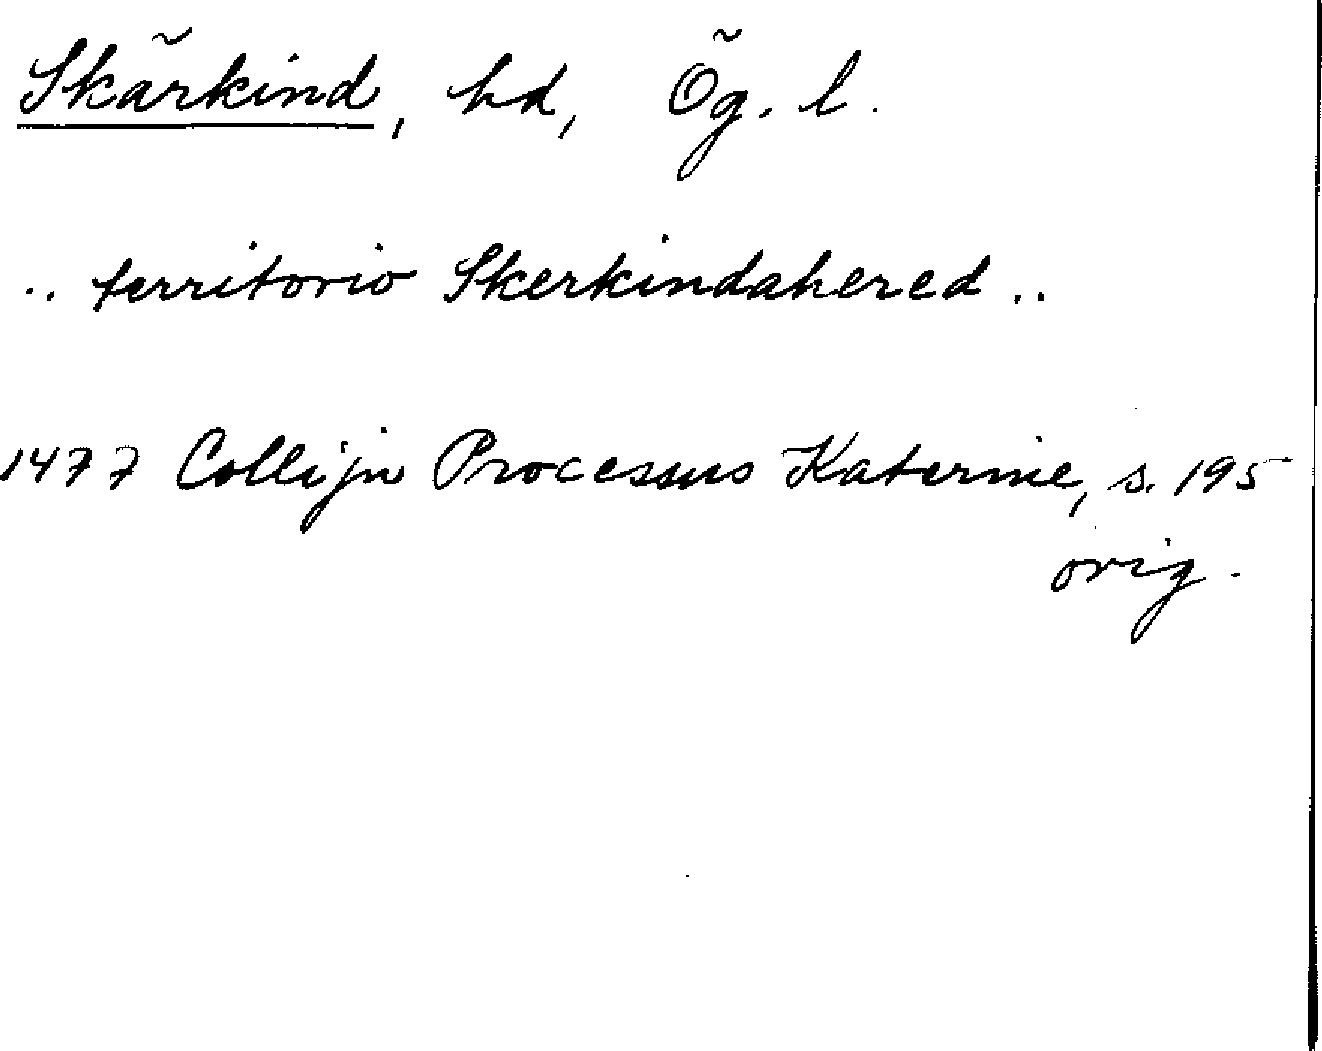 Skärkind, hd, Ög. l.
.. territorio Skerkindahered ..
1477 Collijn Processus Katerine, s. 195
orig.